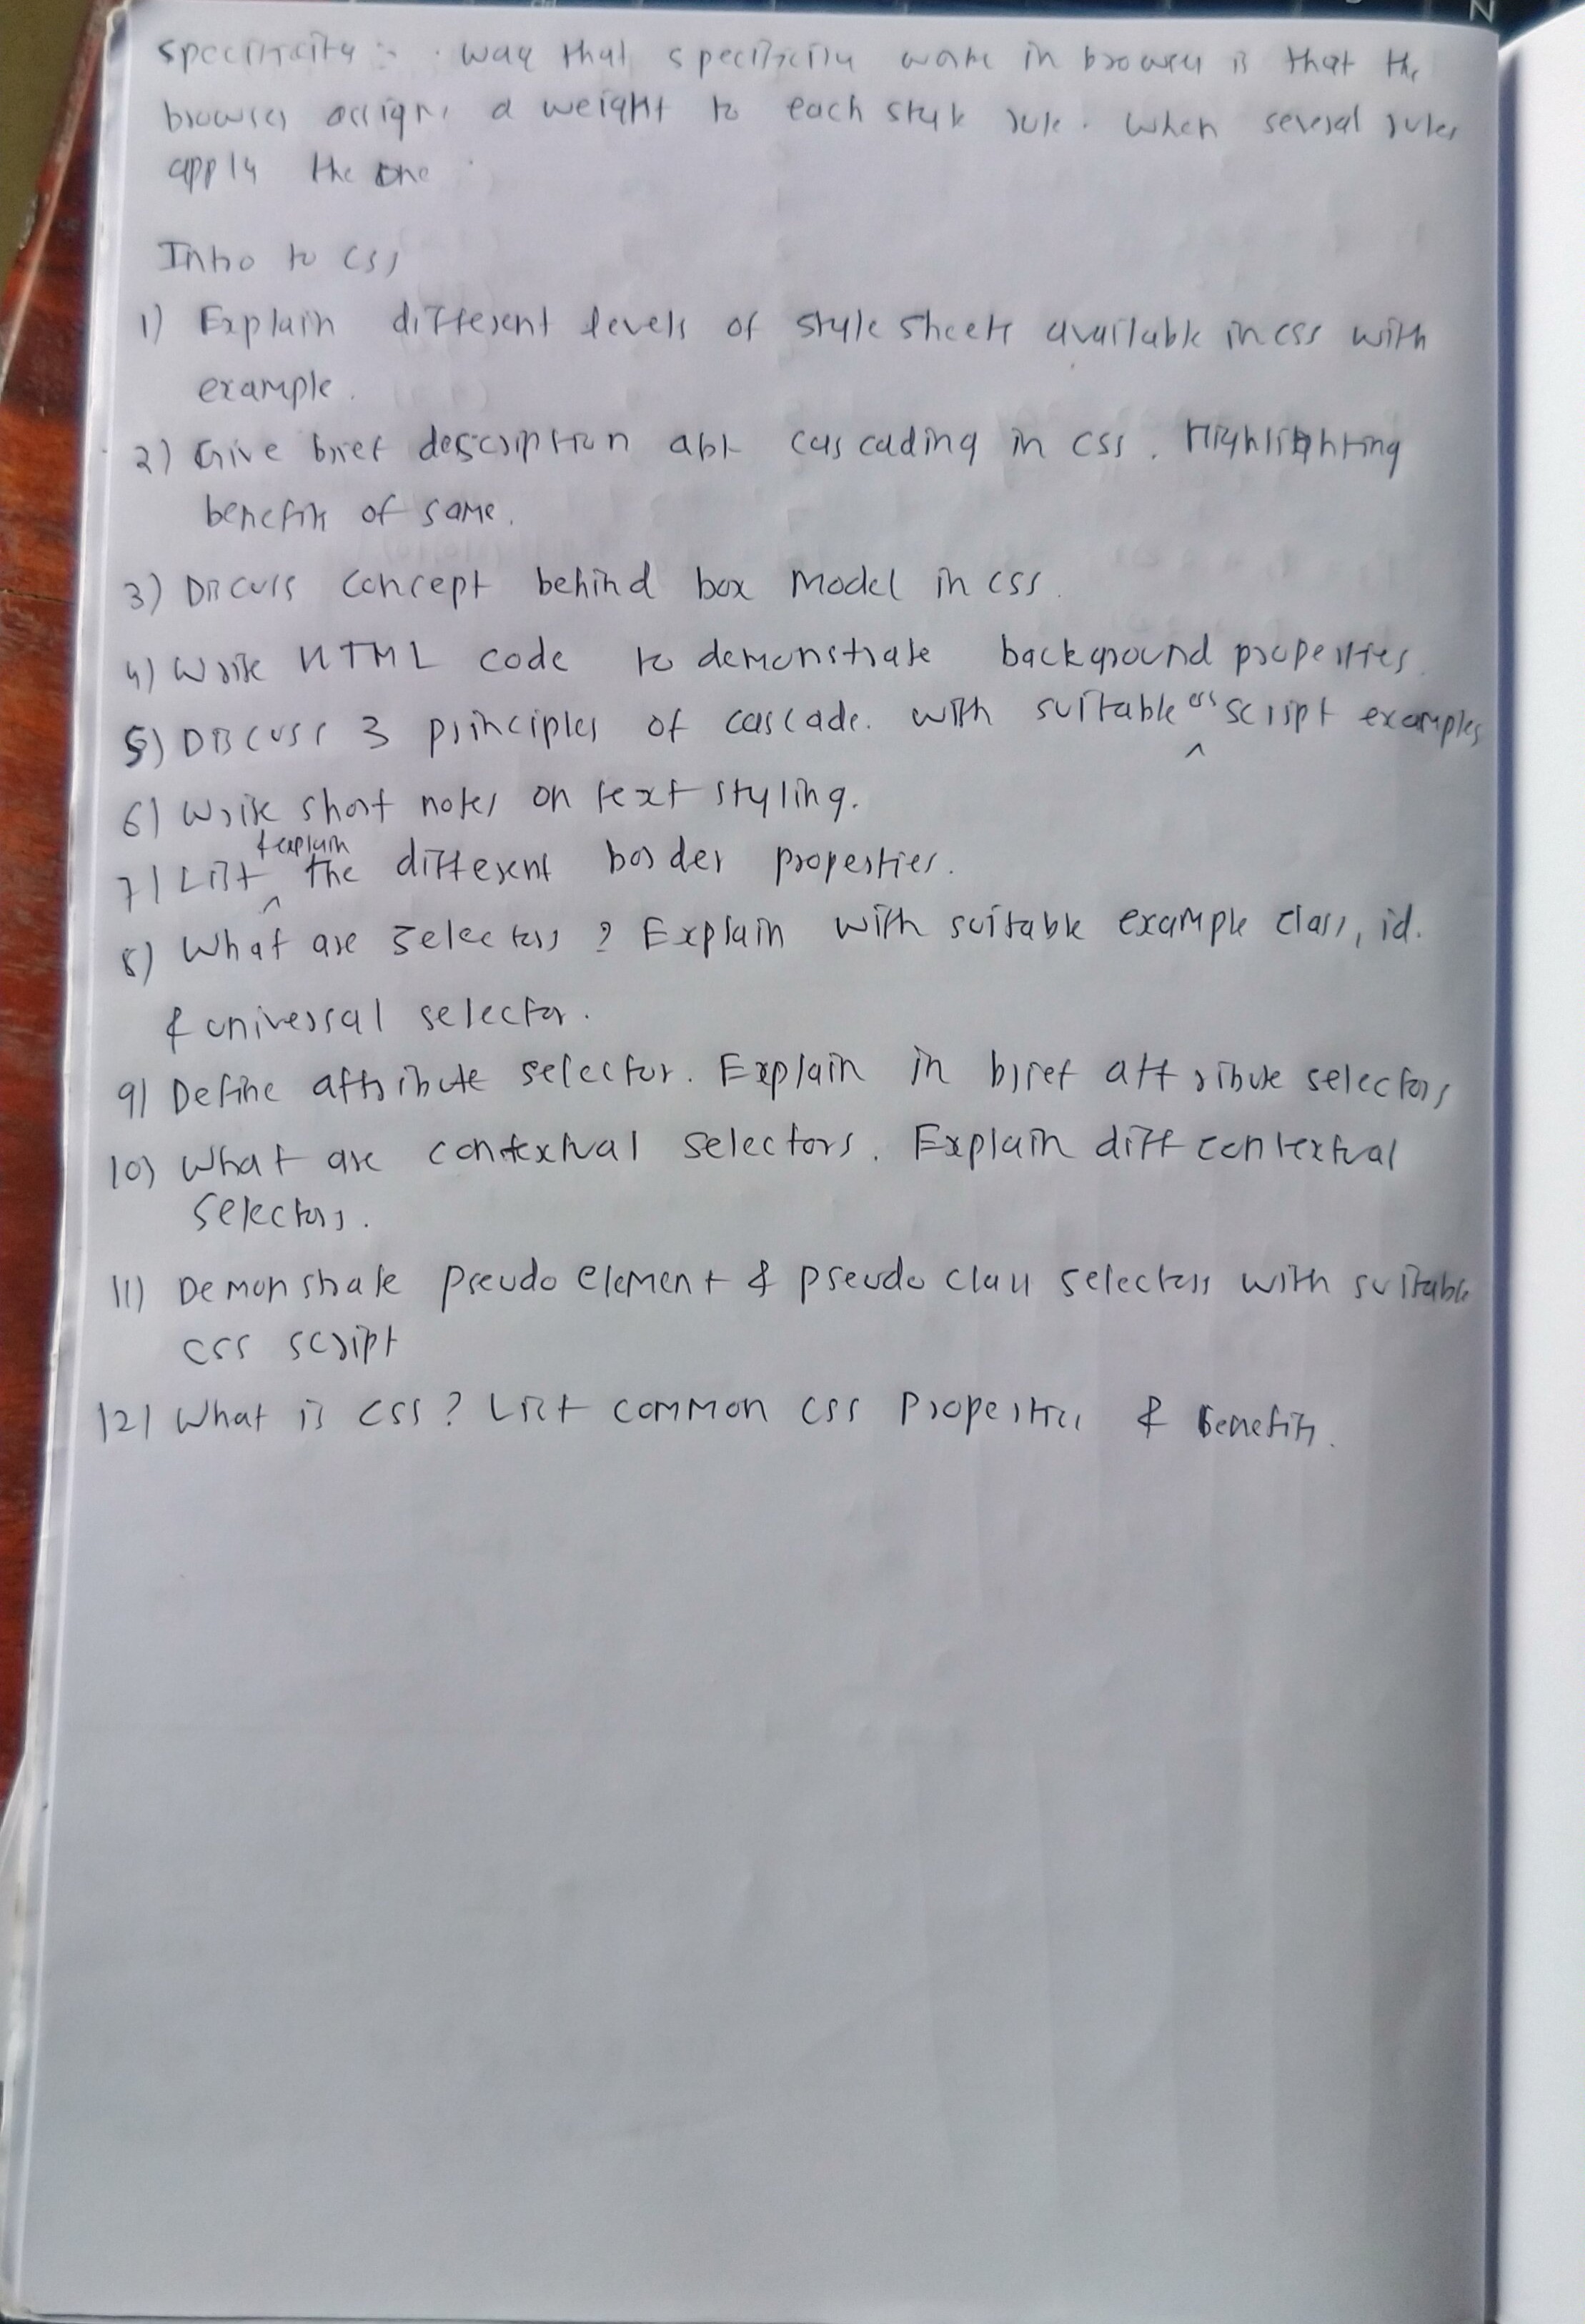 specificity :- . way that specificity work in browser is that the
browser assigns a weight to each style rule. When several rules
apply the one
Intro to CSS
1) Explain different levels of style sheets available in css with
example.
2) Give brief description abt cascading in css. Highlighting
benefits of same.
3) Discuss concept behind box model in css.
4) Write HTML code to demonstrate background properties.
5) Discuss 3 principles of cascade. with suitable css script examples
6) Write short notes on text styling.
7) List & explain the different border properties.
8) What are selectors ? Explain with suitable example class, id.
& universal selector.
9) Define attribute selector. Explain in brief attribute selectors
10) What are contextual selectors. Explain diff contextual
selectors.
11) Demonstrate pseudo element & pseudo class selectors with suitable
css script
12) What is CSS? List common css Properties & benefits.